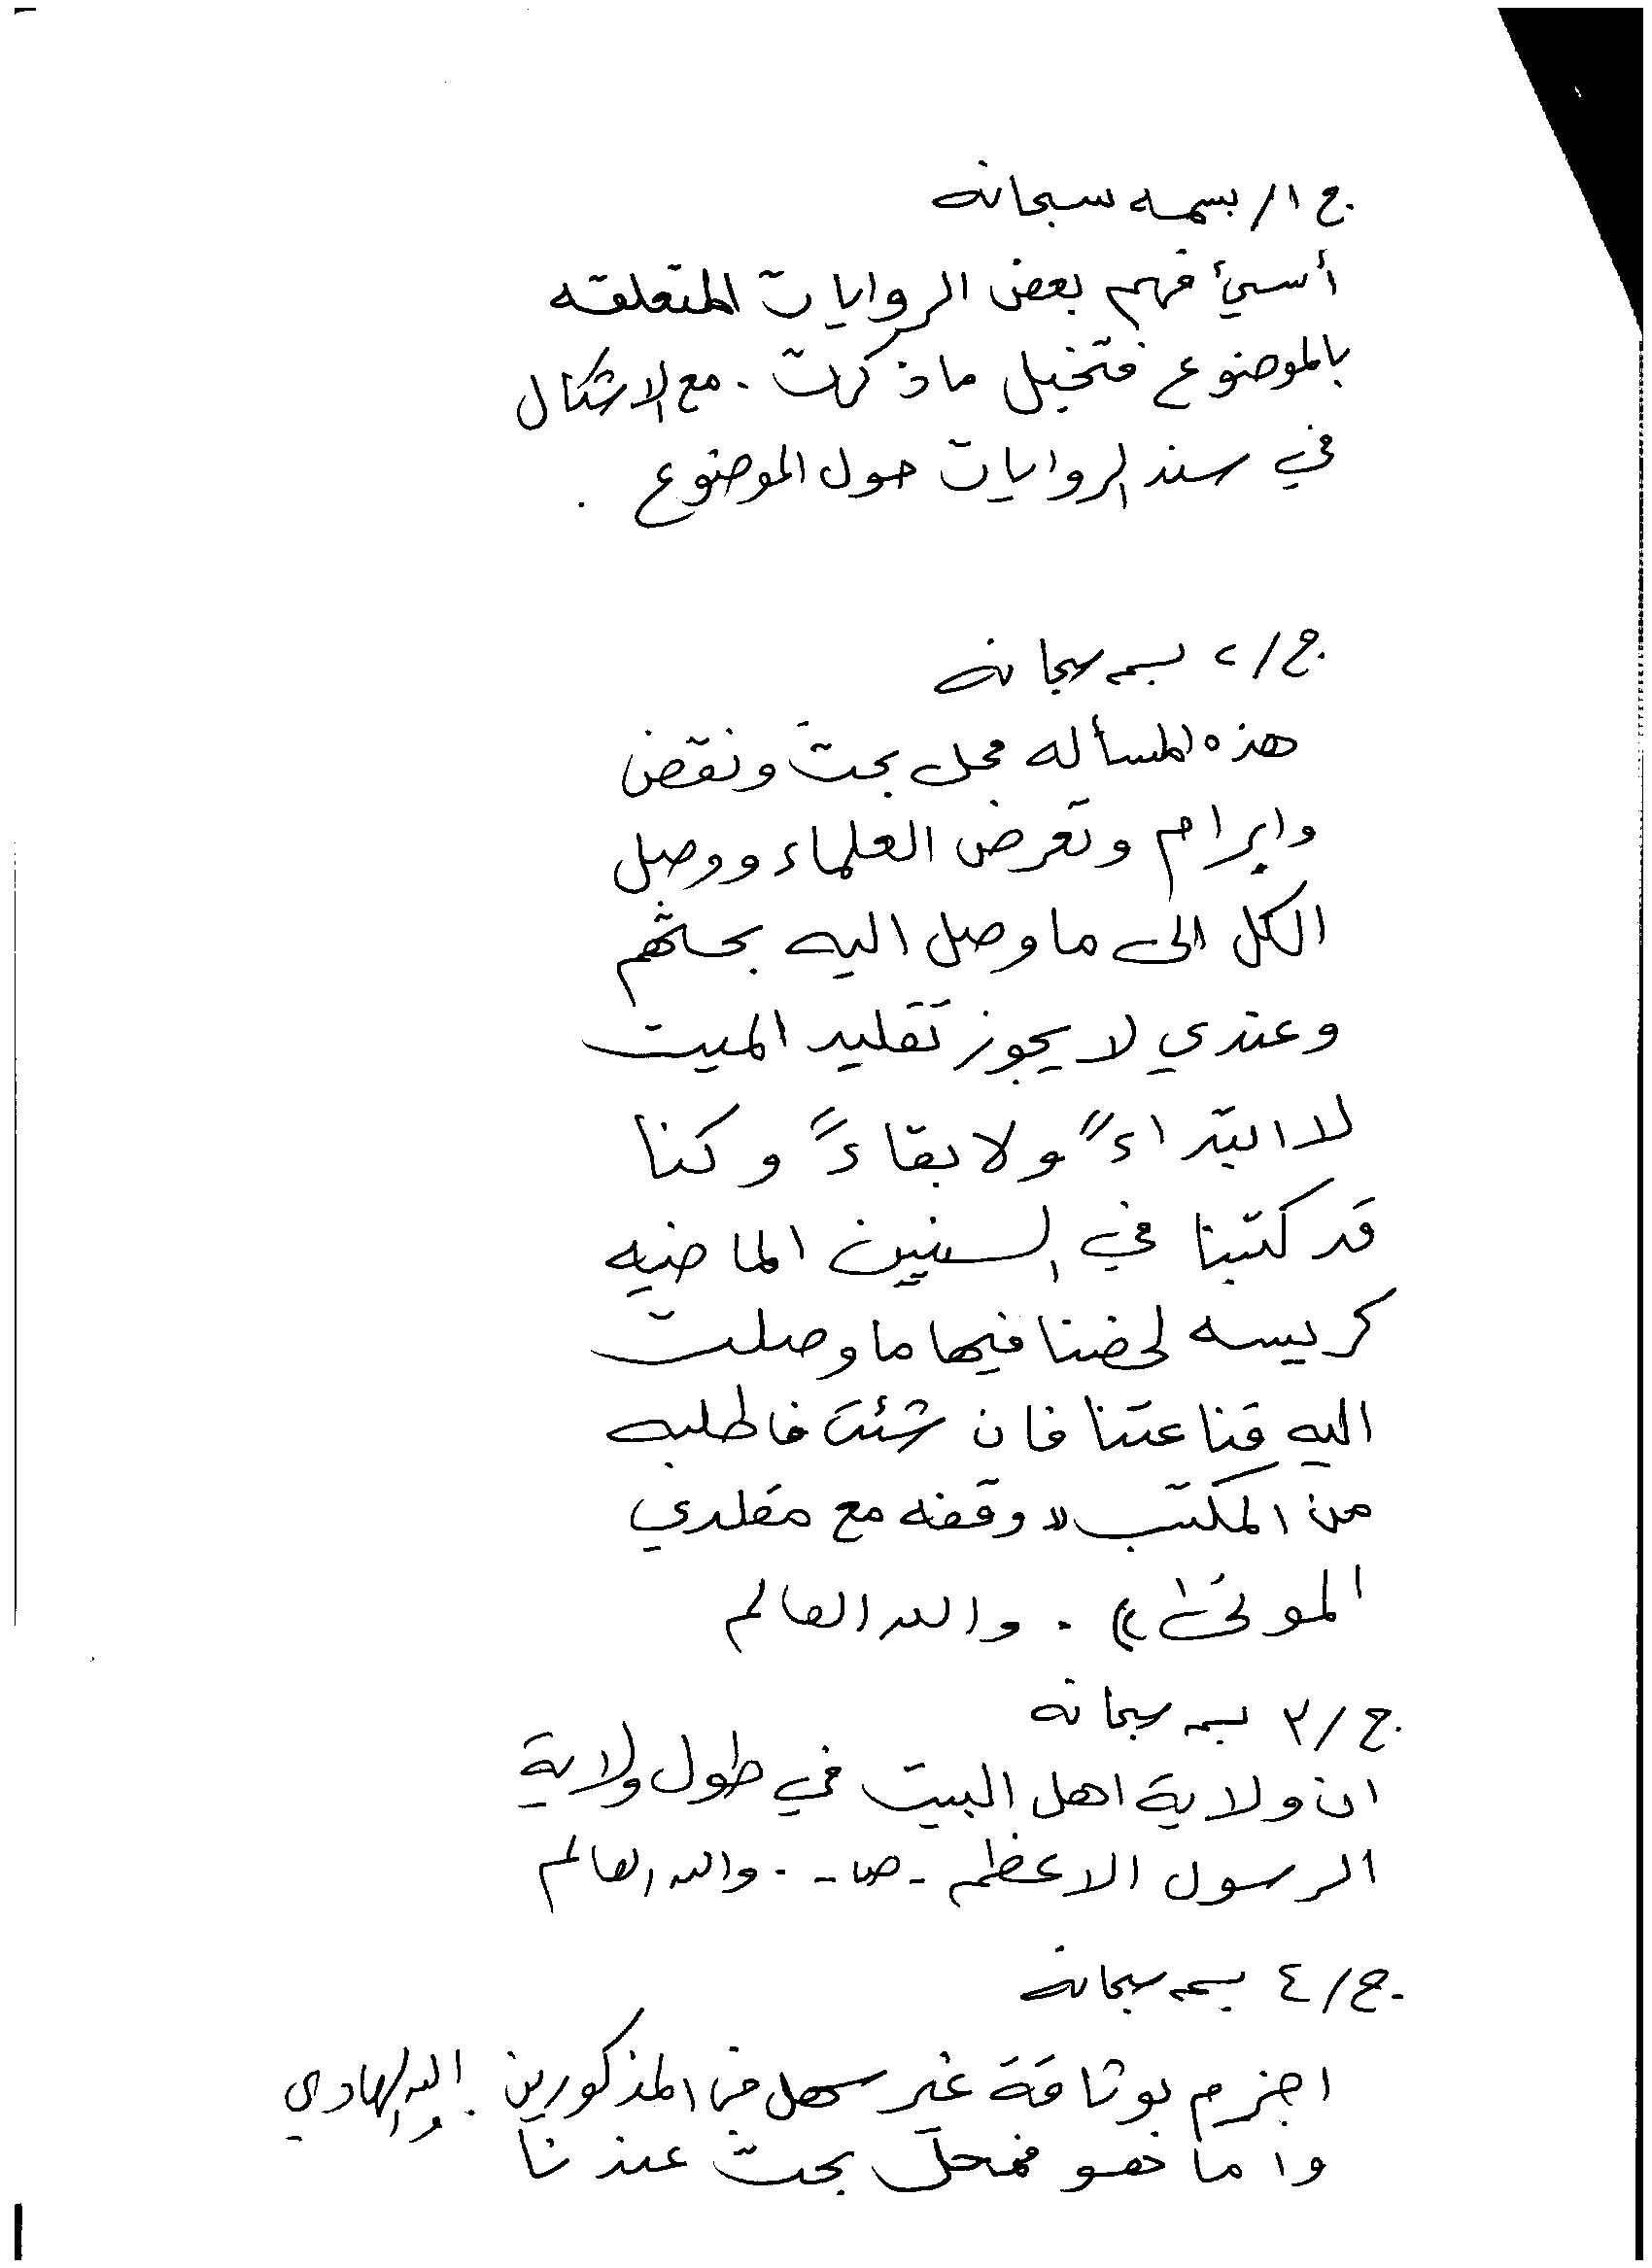 ج ١/ بسمه سبحانه
أسيئ فهم بعض الروايات المتعلقه
بالموضوع فتخيل ما ذكرت . مع الاشكال
في سند الروايات حول الموضوع .
ج/ ٢ بسمه سبحانه
هذه المسأله محل بحث ونقض
وابرام وتعرض العلماء ووصل
الكل الى ما وصل اليه بحثهم
وعندي لا يجوز تقليد الميت
لا ابتداءً ولا بقاءً وكنا
قد كتبنا في السنين الماضيه
كريسه لخصنا فيها ما وصلت
اليه قناعتنا فان شئت فاطلبه
من المكتب «وقفه مع مقلدي
الموتى» . والله العالم
ج/ ٣ بسمه سبحانه
ان ولاية اهل البيت في طول ولاية
الرسول الاعظم -ص- . والله العالم
ج/ ٤ بسمه سبحانه
اجزم بوثاقة غير سهل من المذكورين .
واما هو فمحل بحث عندنا والله الهادي